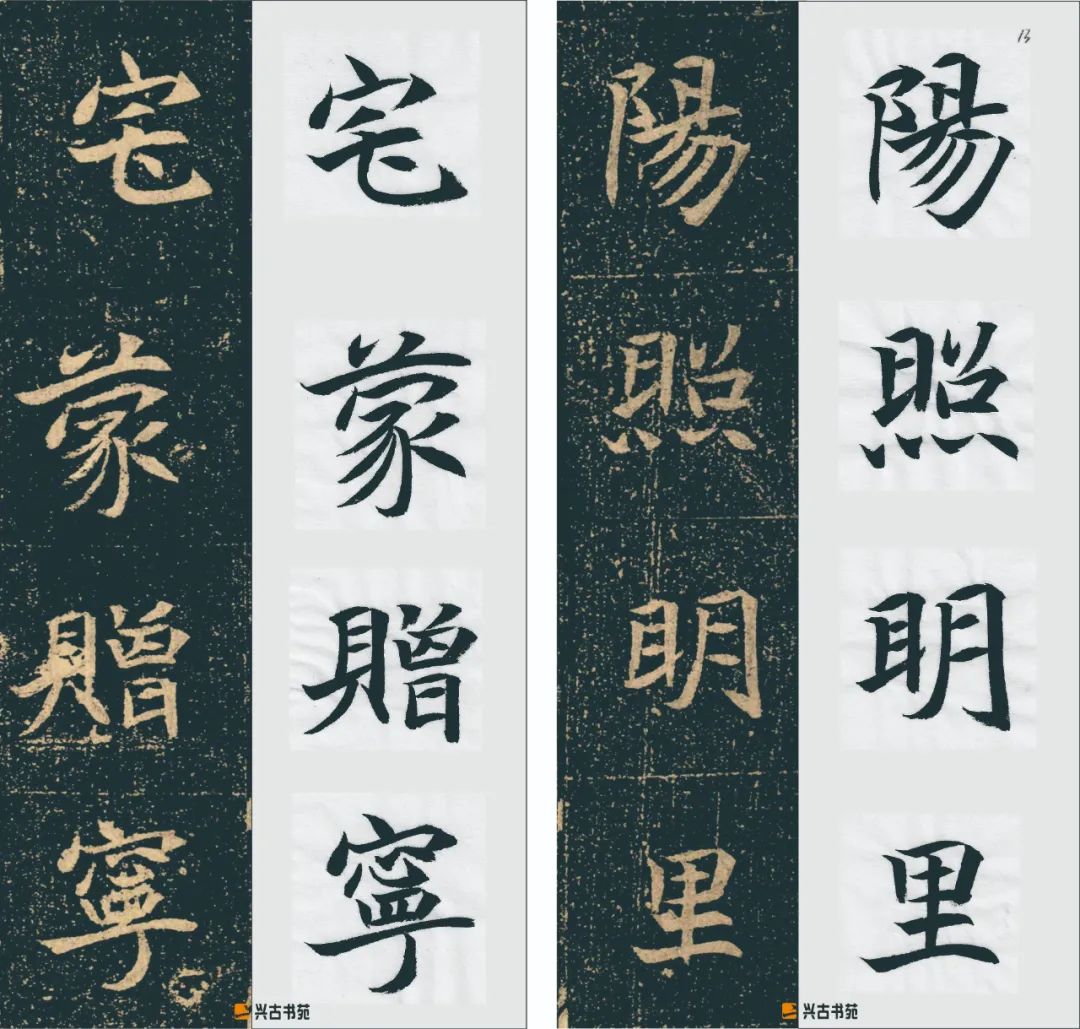 陽照明里
陽照明里
宅蒙贈寧
宅蒙贈寧
13
兴古书苑
兴古书苑